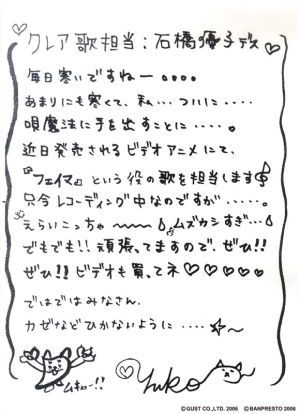 ♡クレア歌担当:石橋優子デス♡
毎日寒いですねー。。。。
あまりにも寒くて、私…ついに‥‥
唄魔法に手を出すことに‥‥。
近日発売されるビデオアニメにて、
『フェイマ』という役の歌を担当します
只今レコーディング中なのですが‥‥‥。
えらいこっちゃ〜〜〜♪ムズカシすぎ…♪
でもでも!!頑張ってますので、ぜひ!!
ぜひ!!ビデオも買ってネ♡♡♡♡♡
ではではみなさん、
カゼなどひかないように‥‥☆〜
ムキュー!!
♡Yuko
©GUST CO.,LTD. 2006 ©BANPRESTO 2006